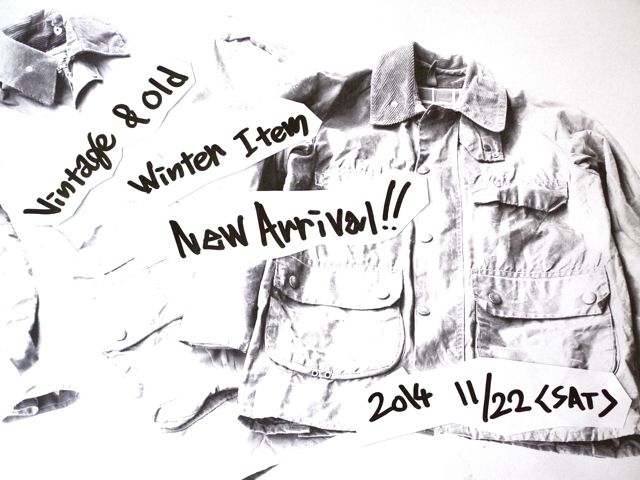 Vintage & Old
Winter Item
New Arrival!!
2014 11/22 <SAT>